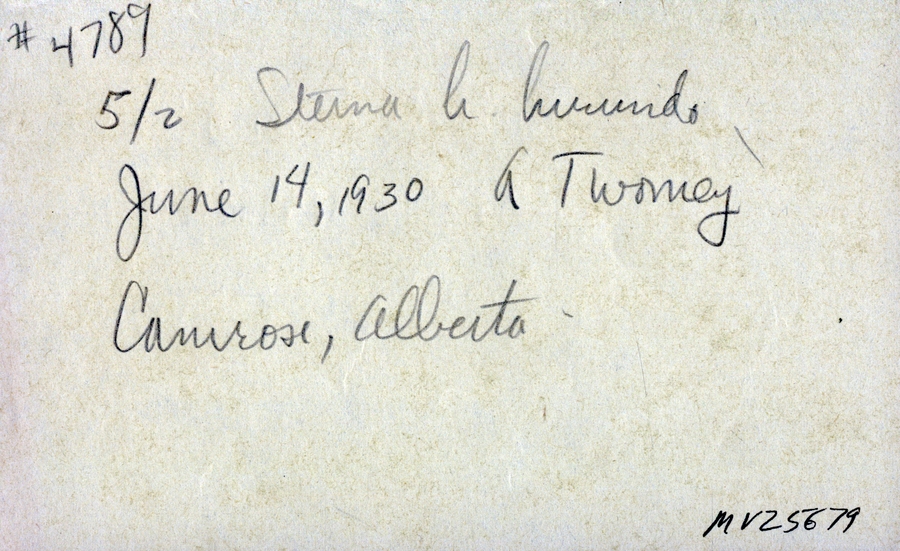 # 4789
5/2 Sterna h. hirundo
June 14, 1930 A Twomey
Camrose, Alberta
MVZ 5679